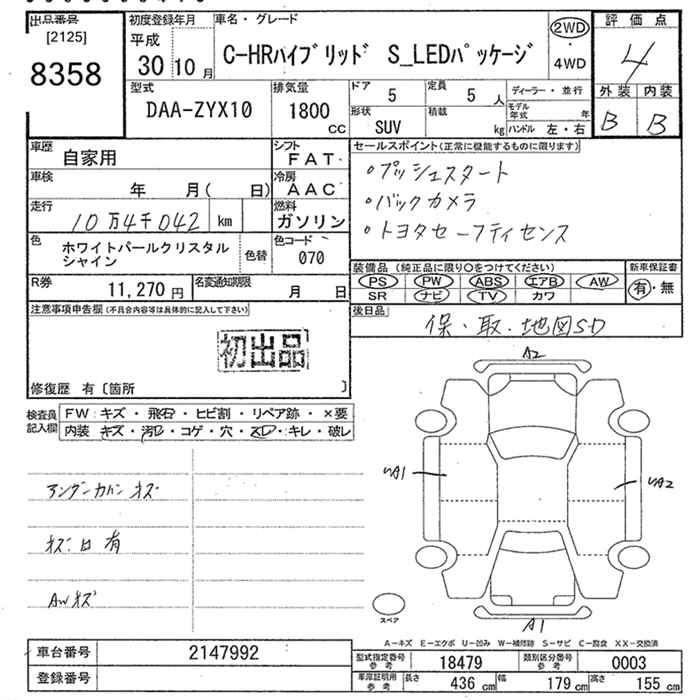 出品番号
[2125]
8358
初度登録年月
平成
30 10 月
車名・グレード
C-HRハイブリッド S_LEDパッケージ
2WD
・
4WD
評価点
4
外装 内装
B B
型式
DAA-ZYX10
排気量
1800
CC
ドア
5
定員
5 人
ディーラー・並行
形状
SUV
積載
kg
モデル年式 年
ハンドル 左・右
車歴
自家用
シフト
FAT
車検
年 月( 日)
冷房
AAC
走行
10万4千042 km
燃料
ガソリン
色
ホワイトパールクリスタル
シャイン
色替
色コード
070
R券
11,270 円
名変通知期限
月 日
セールスポイント(正常に機能するものに限ります)
・プッシュスタート
・バックカメラ
・トヨタセーフティセンス
装備品 (純正品に限り○をつけてください)
PS PW ABS エアB AW
SR ナビ TV カワ
新車保証書
有・無
後日品
保・取・地図SD
注意事項申告欄(不具合内容等は具体的に記入して下さい)
初出品
修復歴 有〔箇所 〕
検査員
記入欄
FW:キズ・飛石・ヒビ割・リペア跡・×要
内装 キズ・汚レ・コゲ・穴・スレ・キレ・破レ
アンダーカバーキズ
キズ凹有
AWキズ
A2
UA1
UA2
A1
スペア
A−キズ E−エクボ U−凹み W−補修跡 S−サビ C−腐食 XX−交換済
車台番号
2147992
登録番号
型式指定番号
参考
18479
類別区分番号
参考
0003
車庫証明用
参考
長さ 436 cm 幅 179 cm 高さ 155 cm